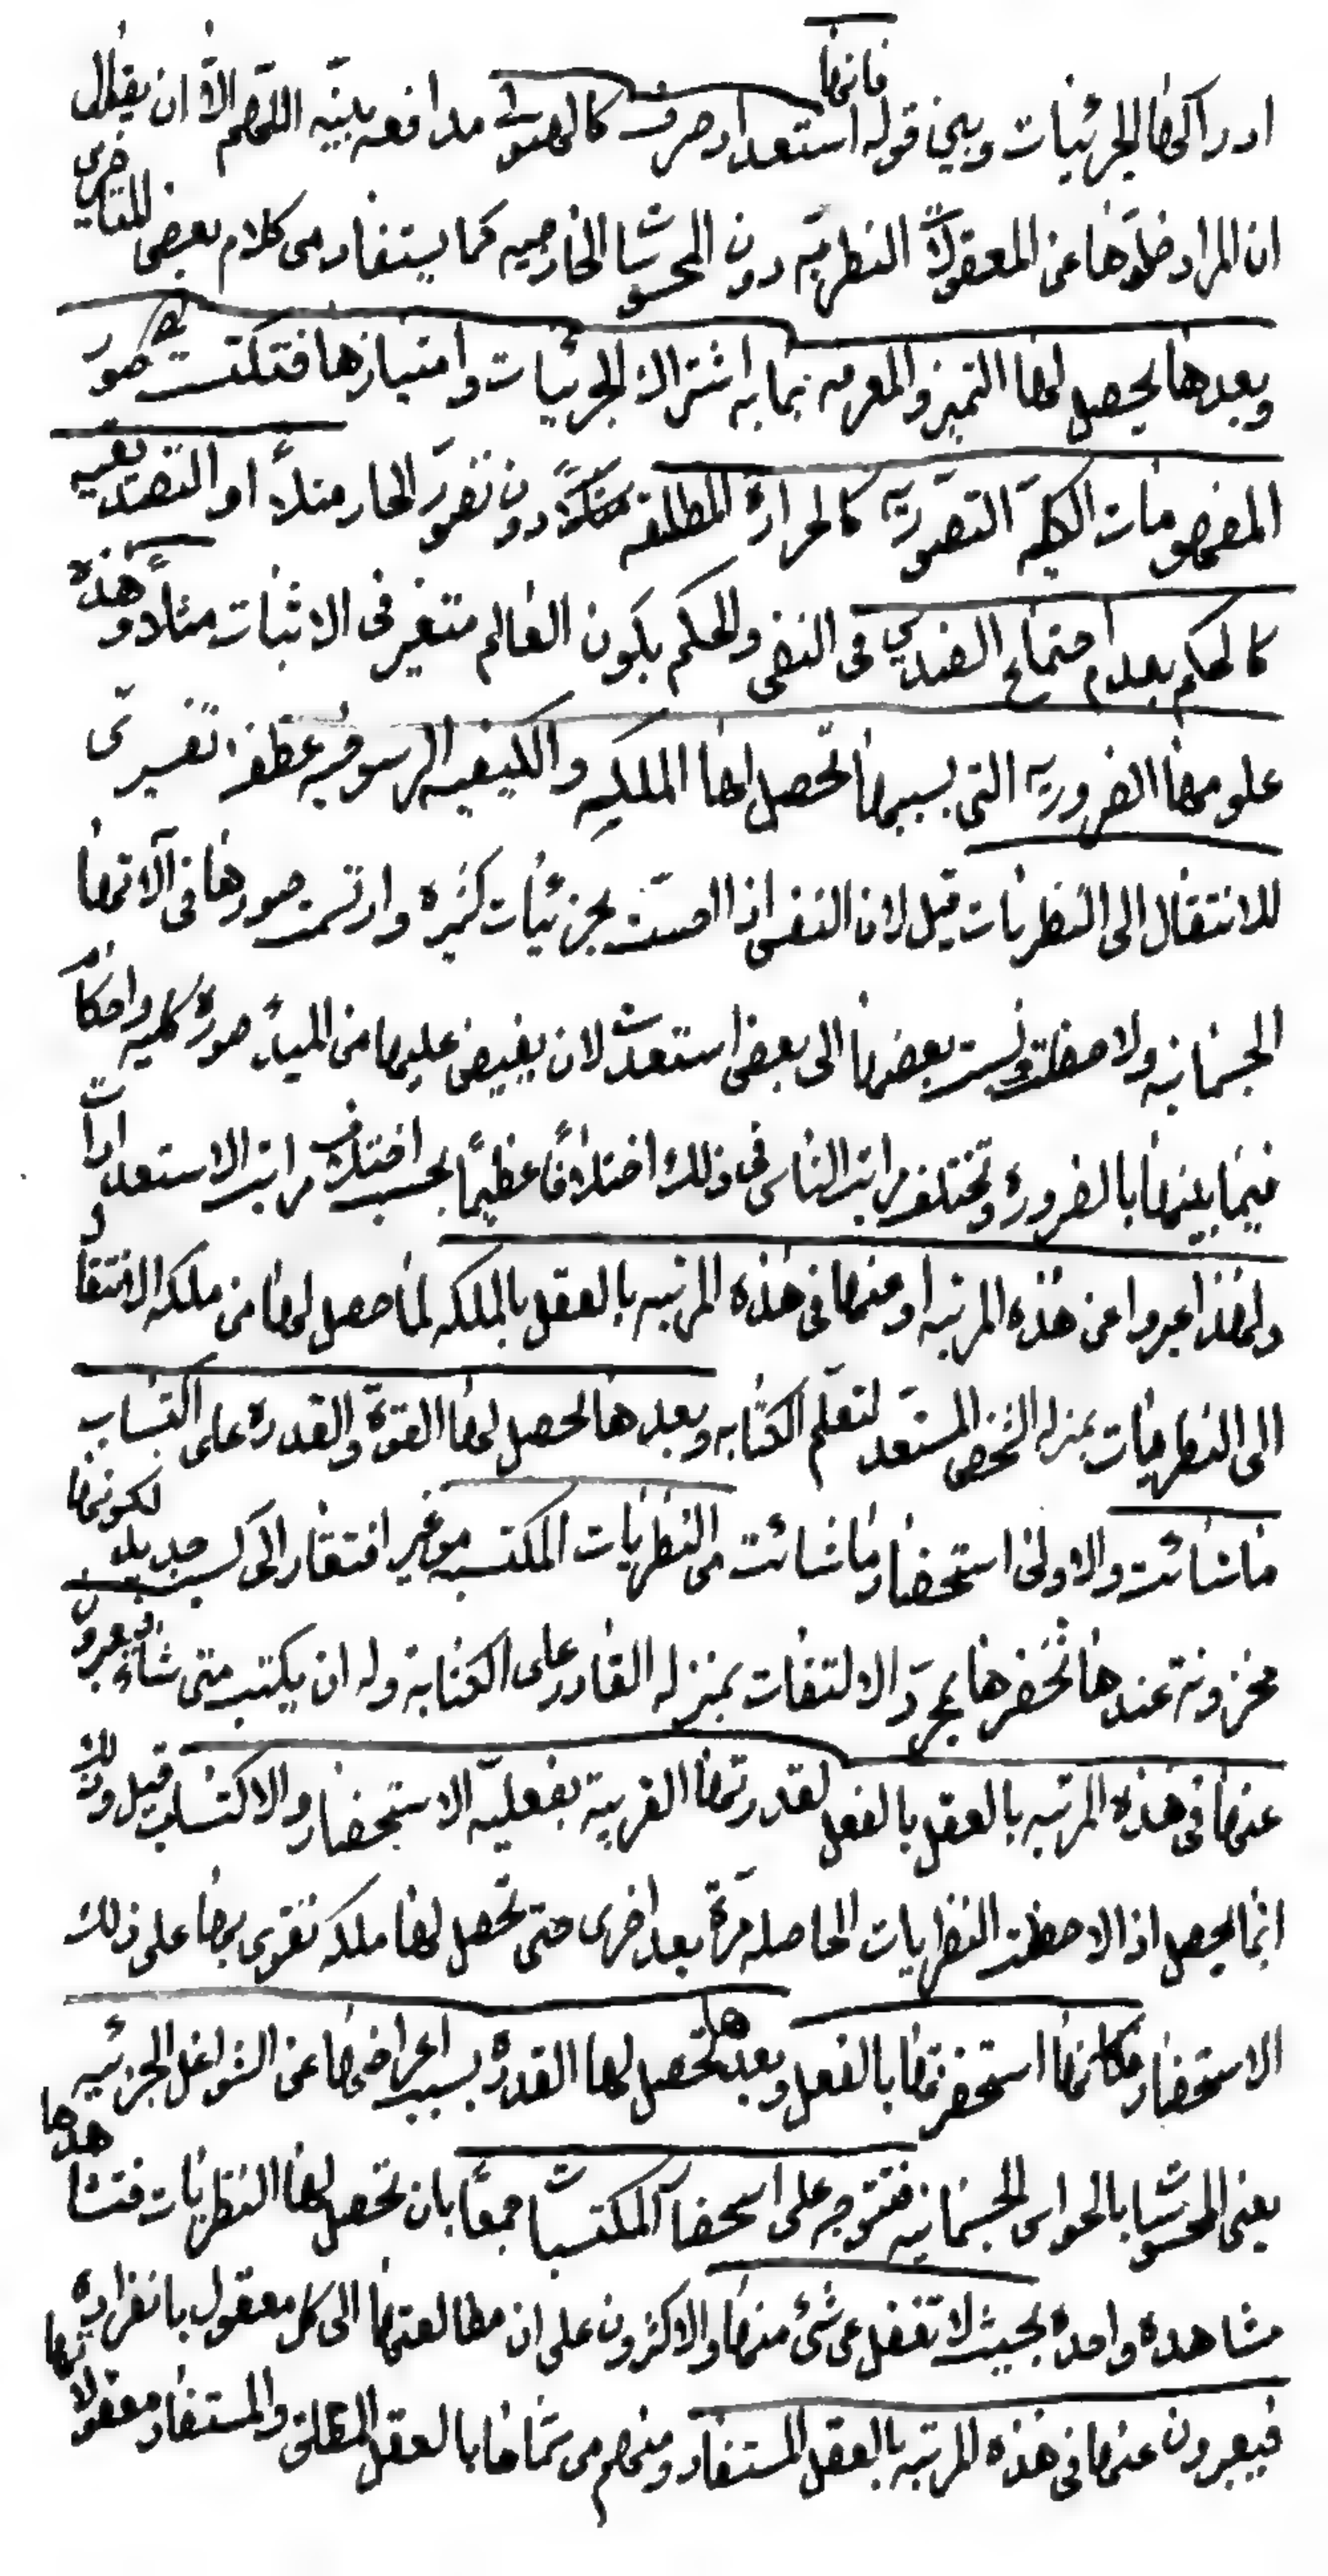 ادراكها للجزئيات وبين قوله فانها استعداد صرف كالهيولى مدافعه بينّه اللّهم الّا ان يقال
ان المراد خلوّها عن المعقولات النظريّه دون المحسوسات الخارجيه كما يستفاد من كلام بعض المتاخرين
وبعدها يحصل لها التميز والمعرفه بما به اشتراك الجزئيات وامتيازها فتكتسب به صور
المفهومات الكليّه التصوّريّه كالحرارة المطلقه مثلاً دون تصوّر الحار مثلاً او التصديقيه
كالحكم بعدم اجتماع الضدين فى النفى والحكم بكون العالم متغير فى الاثبات مثلاً وهذه
علومها الضروريه التى بسببها تحصل لها الملكه والكيفيه الرسوخيه عطف تفسيرى
للانتقال الى النظريات قيل لان النفس اذا احسّت بجزئيات كثيره وارتسمت صورها فى آلاتها
الجسمانيه ولاحظت ونسبت بعضها الى بعض استعدت لان يفيض عليها من المبدأ صورة كليه واحكام
فيما بينها بالضروره وتختلف مراتب الناس فى ذلك اختلافاً عظيماً بحسب اختلاف مراتب الاستعدادات
ولهذا عبروا عن هذه المرتبه او عنها فى هذه المرتبه بالعقل بالملكه لما حصل لها من ملكه الانتقال
الى النظريات بمنزله الشخص المستعد لتعلّم الكتابه وبعدها تحصل لها القوّة والقدره على اكتساب
ماشائت والاولى استحضار ماشائت من النظريات المكتسبه من غير افتقار الى كسب جديد لكونها
مخزونة عندها تحضرها بمجرّد الالتفات بمنزله القادر على الكتابة وله ان يكتب متى شاء فيعبرون
عنها فى هذه المرتبه بالعقل بالفعل لقدرتها القريبة بفعليّه الاستحضار والاكتساب قيل وذلك
انما يحصل اذا لاحظت النظريات الحاصله مرّة بعد اخرى حتى تحصل لها ملكه تقوى بها على ذلك
الاستحضار فكانها استحضرتها بالفعل وبعدها تحصل لها القدرة بسبب اعراضها عن الشواغل الجزئيه
يعنى المحسوسات بالحواس الجسمانيه فتتوجه على استحضار المكتسبات جميعاً بان تحصل لها النظريات فتشاهدها
مشاهده واحدة بحيث لا تغفل عن شئ منها والاكثرون على ان مطالعتها الى كل معقول بانفراده
فيعبرون عنها فى هذه المرتبه بالعقل المستفاد ومنهم من سمّاها بالعقل المطلق والمستفاد معقولاتها